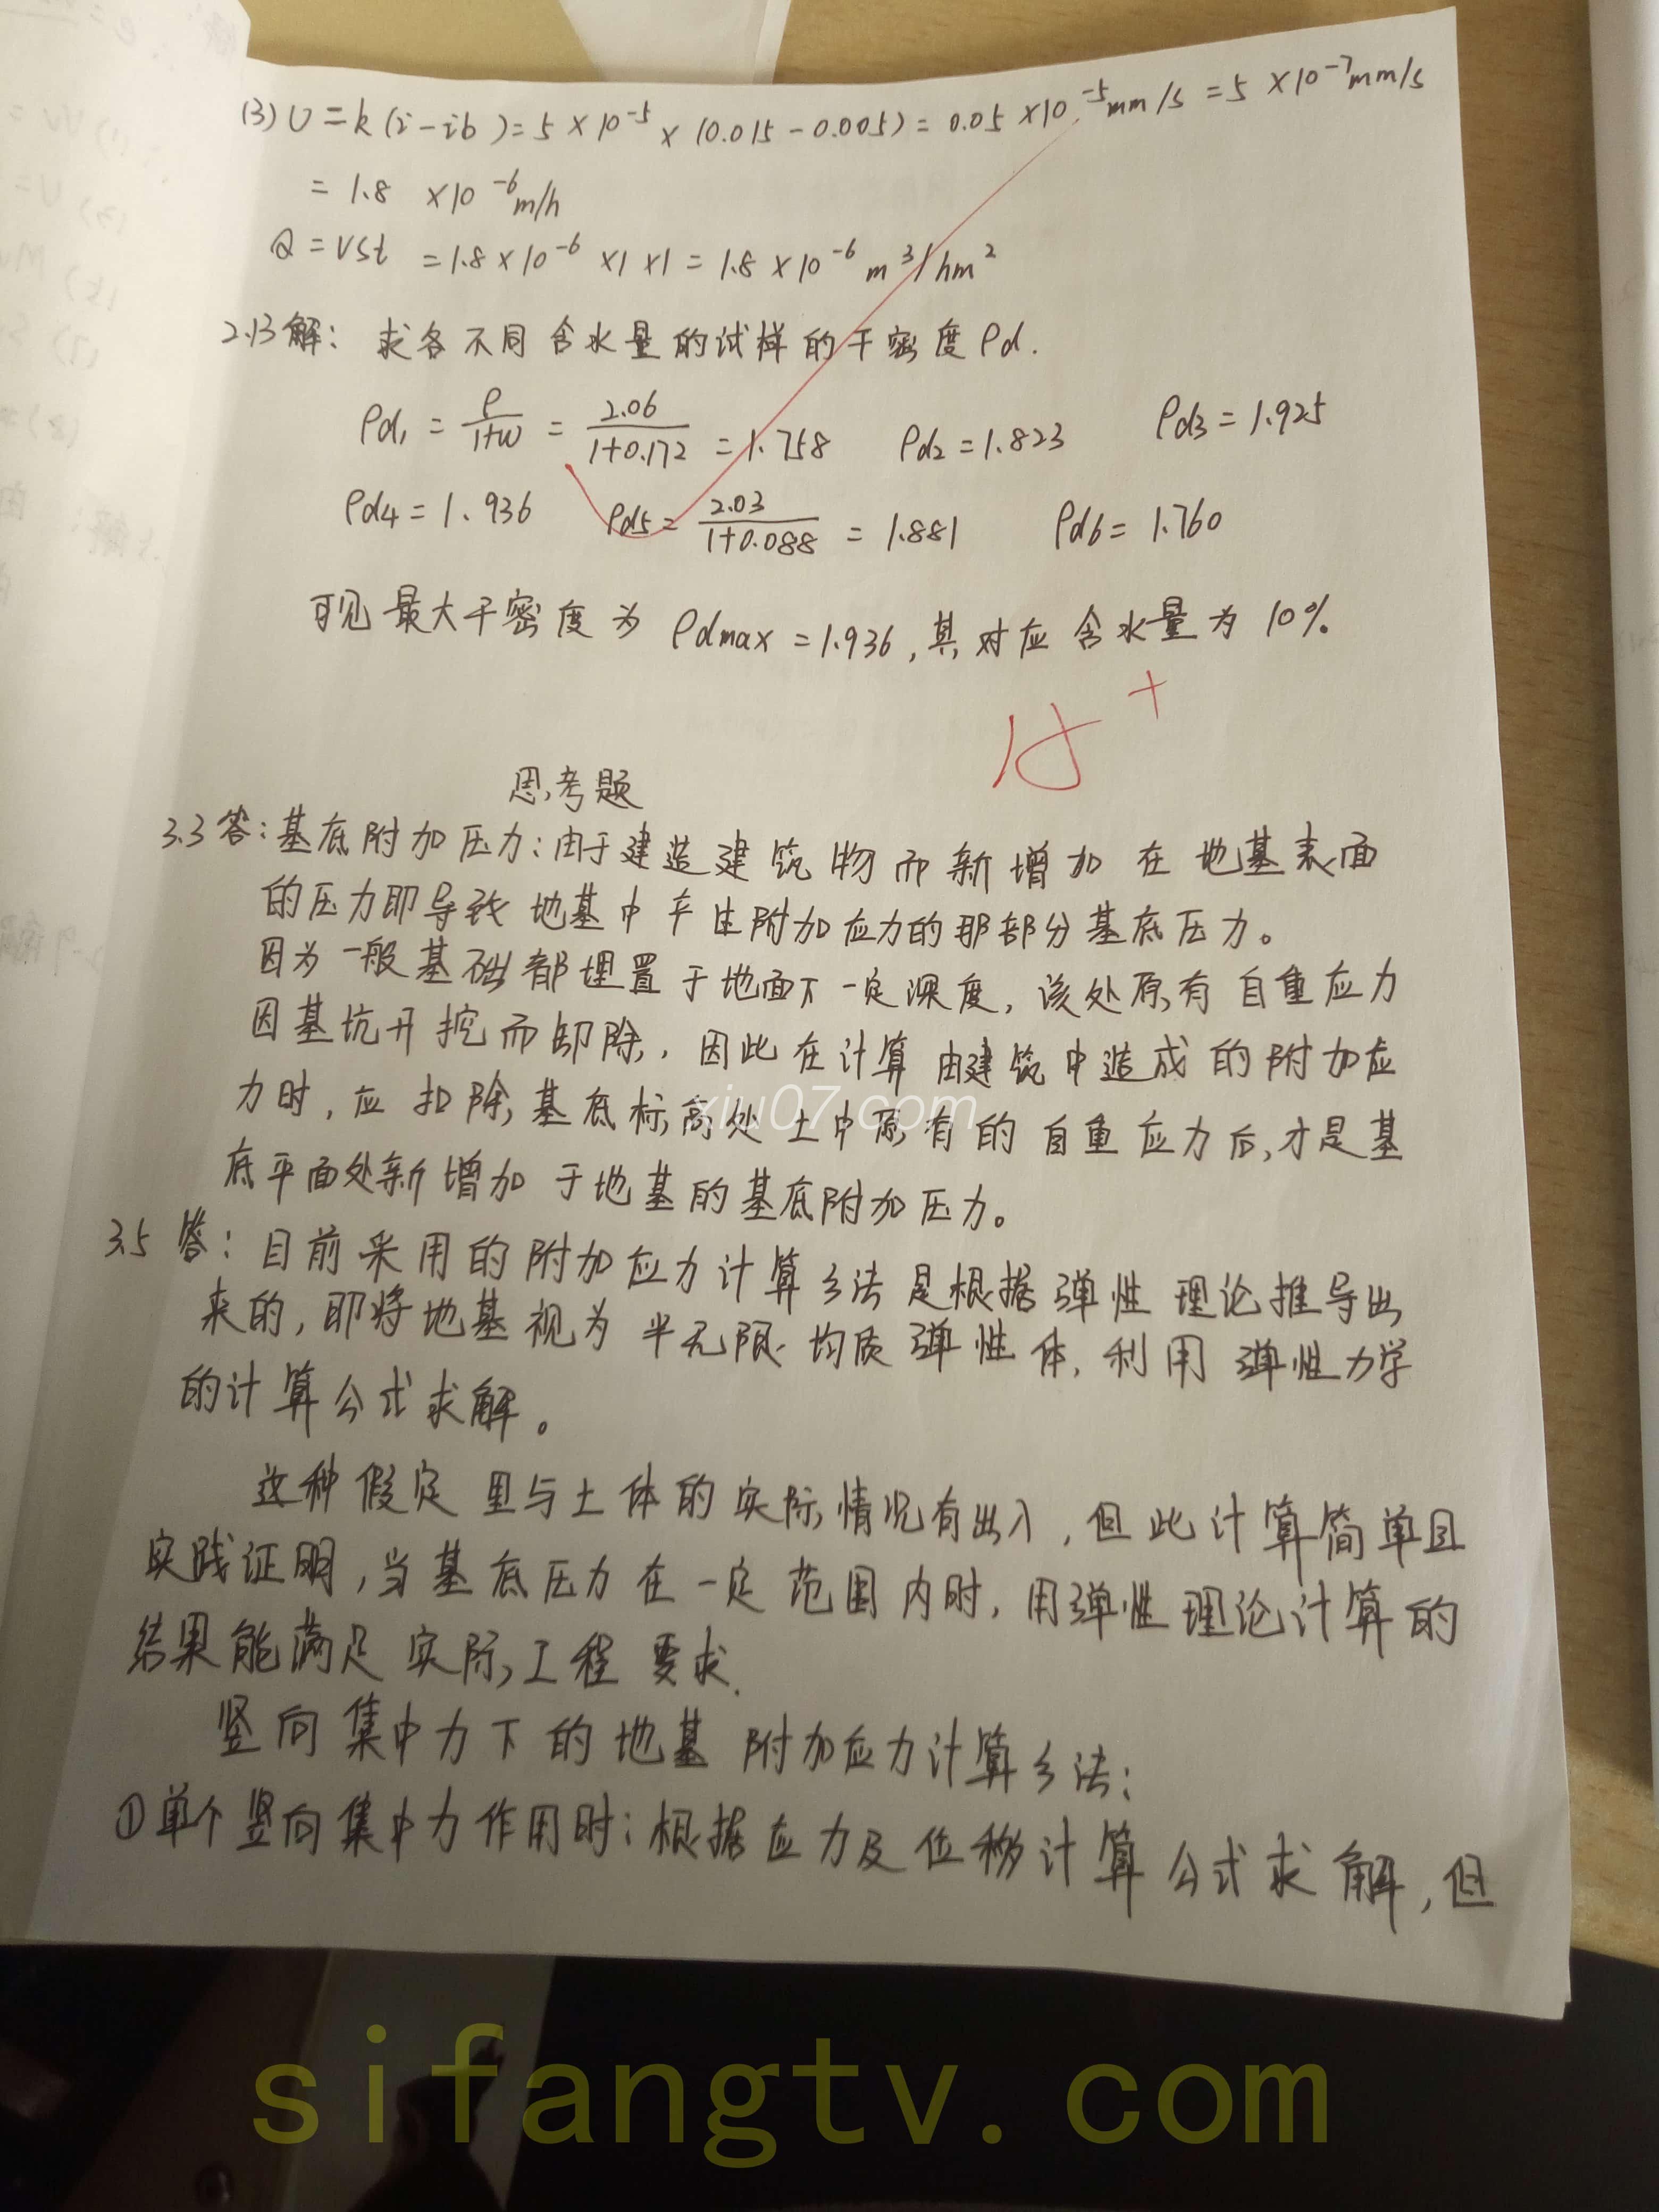 (3) U = k(i-ib) = 5×10⁻⁵×(0.015-0.005) = 0.05×10⁻⁵mm/s = 5×10⁻⁷mm/s
= 1.8 ×10⁻⁶m/h
Q = VSt = 1.8×10⁻⁶×1×1 = 1.8×10⁻⁶ m³/hm²
2.13解: 求各不同含水量的试样的干密度ρd.
ρd₁ = ρ/(1+w) = 2.06/(1+0.172) = 1.758 ρd₂ = 1.823 ρd3 = 1.925
ρd4 = 1.936 ρd5 = 2.03/(1+0.088) = 1.881 ρd6 = 1.760
可见最大干密度为 ρdmax = 1.936, 其对应含水量为 10%.
思考题
3.3答: 基底附加压力: 由于建造建筑物而新增加在地基表面
的压力即导致地基中产生附加应力的那部分基底压力。
因为一般基础都埋置于地面下一定深度, 该处原有自重应力
因基坑开挖而卸除, 因此在计算由建筑中造成的附加应
力时, 应扣除基底标高处土中原有的自重应力后, 才是基
底平面处新增加于地基的基底附加压力。
3.5 答: 目前采用的附加应力计算方法是根据弹性理论推导出
来的, 即将地基视为半无限均质弹性体, 利用弹性力学
的计算公式求解。
这种假定里与土体的实际情况有出入, 但此计算简单且
实践证明, 当基底压力在一定范围内时, 用弹性理论计算的
结果能满足实际工程要求.
竖向集中力下的地基附加应力计算方法:
①单个竖向集中力作用时: 根据应力及位移计算公式求解, 但
xiu07.com
sifangtv.com